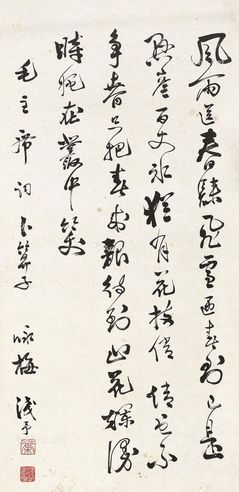 風雨送春歸飛雪迎春到已是
懸崖百丈冰猶有花枝俏俏也不
争春只把春来報待到山花爛漫
時她在叢中笑
毛主席词卜算子 咏梅 淺予